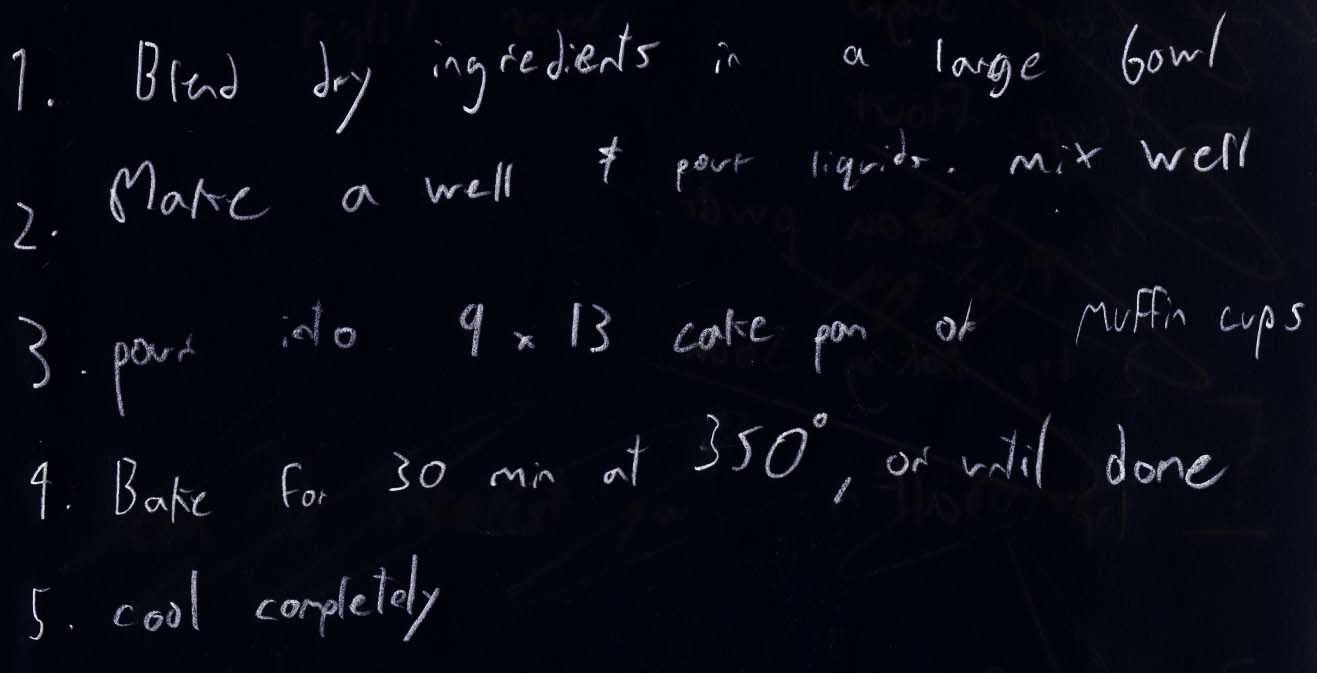 1. Blend dry ingredients in a large bowl
2. Make a well & pour liquids. mix well
3. pour into 9 x 13 cake pan or muffin cups
4. Bake for 30 min at 350°, or until done
5. cool completely